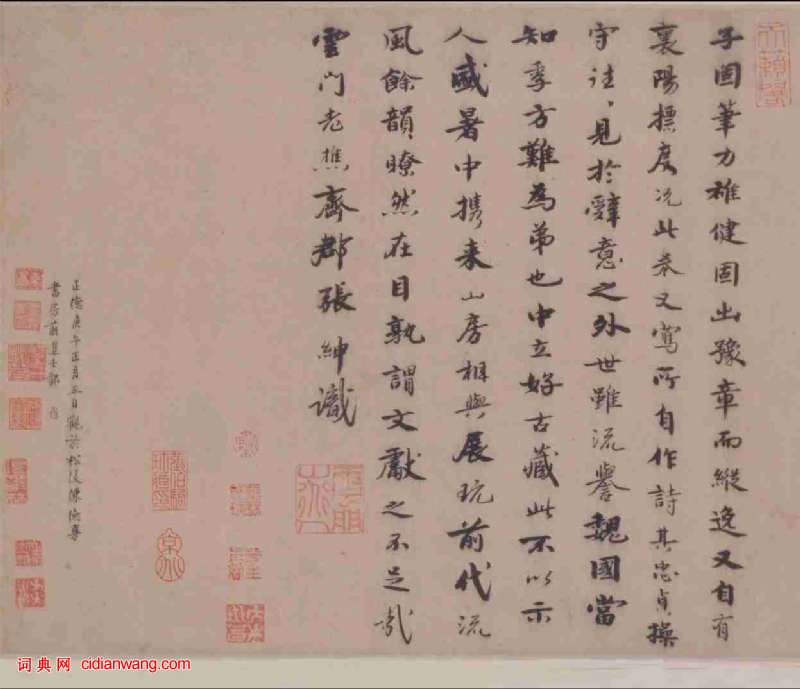 子固筆力雅健固出豫章而縱逸又自有
襄陽標度况此卷又寫所自作詩其忠貞操
守往、見於辭意之外世雖流譽魏國當
知季方難為弟也中立好古藏此不以示
人盛暑中携来山房相與展玩前代流
風餘韻瞭然在目孰謂文獻之不足哉
雲門老樵齊郡張紳識
正德庚午正月五日觀於松
詞典网 cidianwang.com